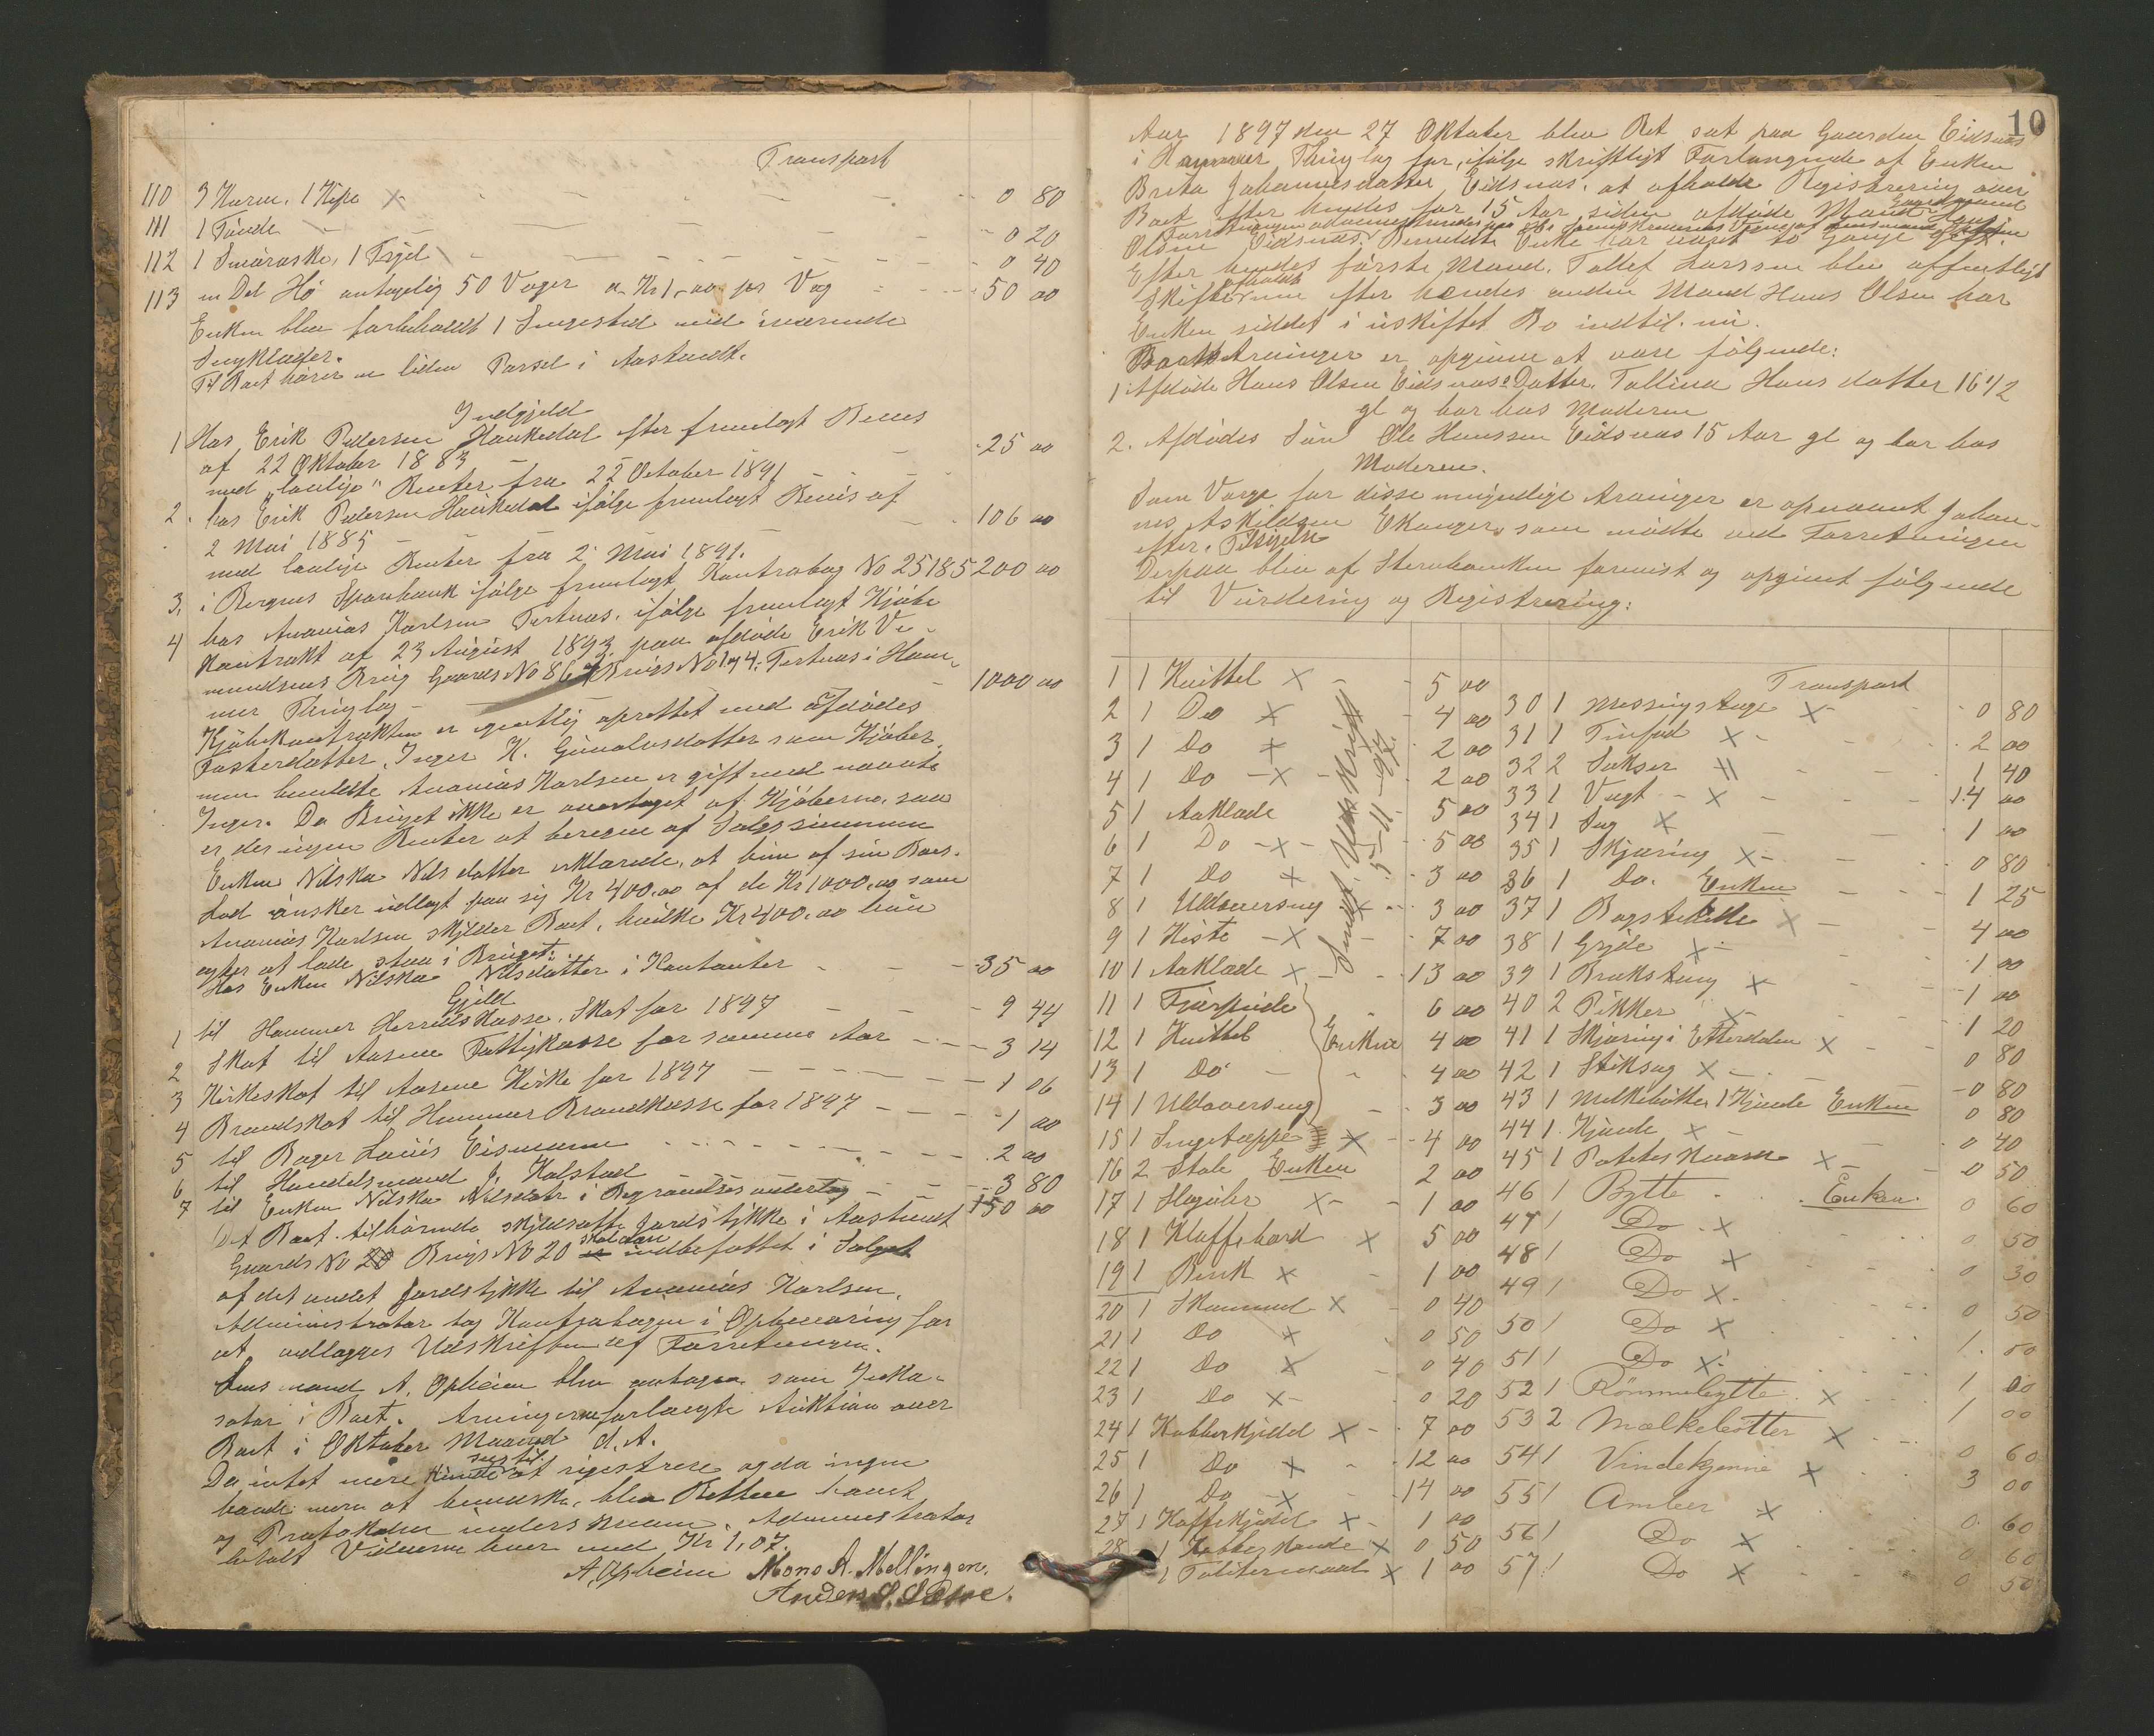 Transport
110 3 Kurve, 1 Kipe × 0 80
111 1 Tönde 0 20
112 1 Smöraske, 1 Trÿel 0 40
113 en Del Hö antagelig 50 Voger a Kr 1,00 pr Vog 50 00
Enken blev forbeholdt 1 Sengested med iværende
Sengklæder.
Til Boet hörer en liden Parsel i Aastundt.
Indgjeld
1 Hos Erik Pedersen Haukedal efter fremlagt Beves 25 00
af 22 Oktober 1883
med "lovlige" Renter fra 22 October 1891
2. hos Erik Pedersen Haukedal ifölge fremlagt Bevis af 106 00
2 Mai 1885
med lovlige Renter fra 2 Mai 1891.
3. i Bergens Sparebank ifölge fremlagt Kontrabog No 25185 200 00
4 hos Ananias Karlsen Tertnæs, ifölge fremlagt Kjöbe
Kontrakt af 23 August 1893 paa afdöde Erik
mundsens Brug Gaards No 86 Brugs No 1 og 4, Tertnæs i Ham-
mer Thinglag 1000 00
Kjöbekontrakten er egentlig oprettet med afdödes
Fosterdatter, Inger K. Gunolvsdatter som Kjöber,
men bemeldte Ananias Karlsen er gift med nævnte
Inger. Da Bruget ikke er overtaget af Kjöberne, saa
er der ingen Renter at beregne af Salgssummen
Enken Nilska Nilsdatter erklærede, at hun af sin Boes-
Lod önsker udlagt paa sig Kr 400,00 af de Kr 1000,00 som
Ananias Karlsen skylder Boet, hvilke Kr 400,00 hun
agter at lade staa i Bruget.
Hos Enken Nilska Nilsdatter i Kontanter 35 00
Gjeld
1 til Hammer Herredskasse, Skat for 1897 9 44
2 Skat til Aasene Fattigkasse for samme Aar 3 14
3 Kirkeskat til Aasene Kirke for 1897 1 06
4 Brandskat til Hammer Brandkasse for 1897 1 00
5 til Bager Louis Eismann 2 00
6 til Handelsmand J. Kalstad 3 80
7 til Enken Nilska Nilsdatr i Begravelses 150 00
Det Boet tilhörende skyldsatte Jordstykke i Aastundt
Gaards No 20 Brugs No 20 skal være indbefattet i Salget
af det andet Jordstykke til Ananias Karlsen.
Administrator tog Kontrabogen i Opbevaring for
at vedlægges Udskriften af Forretningen.
Lensmand A. Opheim blev antagen som Inka-
sator i Boet. Arvingerne forlangte Auktion over
Boet i Oktober Maaned d. A.
Da intet mere sees til at registrere og da ingen
havde mere at bemærke, blev Retten hævet
og Protokollen underskreven. Administrator
betalt Vidnerne hver med Kr 1,07.
A Opheim Mons A. Mellingen.
Anders
10
Aar 1897 den 27 Oktober blev Ret sat paa Gaarden Eidsnæs
i Hammer Thinglag for, ifölge skriftligt Forlangende af Enken
Brita Johannesdatter Eidsnæs, at afholde Registrering over
Boet efter hendes for 15 Aar siden afdöde Mand Gaardmand Hans
Olsen Eidsnæs. Bemeldte Enke har været to Gange gift.
Efter hendes förste Mand, Tollef Larssen blev offentligt
Skifte afholdt men efter hendes anden Mand Hans Olsen har
Enken siddet i uskiftet Bo indtil nu.
Boets Arvinger er opgivne at være fölgende:
1 Afdöde Hans Olsen Eidsnæs's Datter, Tollina Hansdatter 16 1/2
gl og bor hos Moderen
2. Afdödes Sön Ole Hanssen Eidsnæs 15 Aar gl og bor hos
Moderen.
Som Værge for disse umyndige Arvinger er opnævnt Johan-
nes Askildsen Ekanger, som mödte ved Forretningen
efter Tilsigelse
Derpaa blev af Stervboenken forevist og opgivet fölgende
til Vurdering og Registrering:
1 1 Kvittel × 5 00
2 1 Do × 4 00
3 1 Do × 2 00
4 1 Do × 2 00
5 1 Aaklæde 5 00
6 1 Do × 5 00
7 1 Do × 3 00
8 1 Uldoversæng × 3 00
9 1 Kiste × 7 00
10 1 Aaklæde × 13 00
11 1 Fjærpude 6 00
12 1 Kvittel Enken 4 00
13 1 Do 4 00
14 1 Uldoversæng 3 00
15 1 Sengetæppe × 4 00
16 2 Stole Enken 2 00
17 1 × 1 00
18 1 Klaffebord × 5 00
19 1 Benk × 1 00
20 1 Skammel × 0 40
21 1 Do × 0 50
22 1 Do × 0 40
23 1 Do × 0 20
24 1 Kobberkjedel × 7 00
25 1 Do × 12 00
26 1 Do × 14 00
27 1 Kaffekjedel × 1 00
28 1 × 0 50
1 × 1 00
5-11-97.
Transport
30 1 Messingstage × 0 80
31 1 Tinfad × 2 00
32 2 Sakser 1 40
33 1 Vægt × 1.4 00
34 1 Sag × 1 00
35 1 Skjæring × 0 80
36 1 Do. Enken 1 25
37 1 Bagstehelle × 4 00
38 1 Gryde × 1 00
39 1 Brækstang × 1 00
40 2 Pikker × 1 20
41 1 Skjæring i Etterdalen × 0 80
42 1 Stiksag × 0 80
43 1 Melkebötte, 1 Kjende Enken 0 80
44 1 Kjinde × 0 40
45 1 Poteteskværn × 0 50
46 1 Bytte Enken 0 60
47 1 Do × 0 50
48 1 Do × 0 30
49 1 Do × 0 50
50 1 Do × 1 00
51 1 Do × 1 00
52 1 Römmebytte × 1 00
53 2 Mælkebötter × 0 60
54 1 Vindekjerne × 3 00
55 1 Ambeer × 0 60
56 1 Do × 0 60
57 1 Do × 0 50